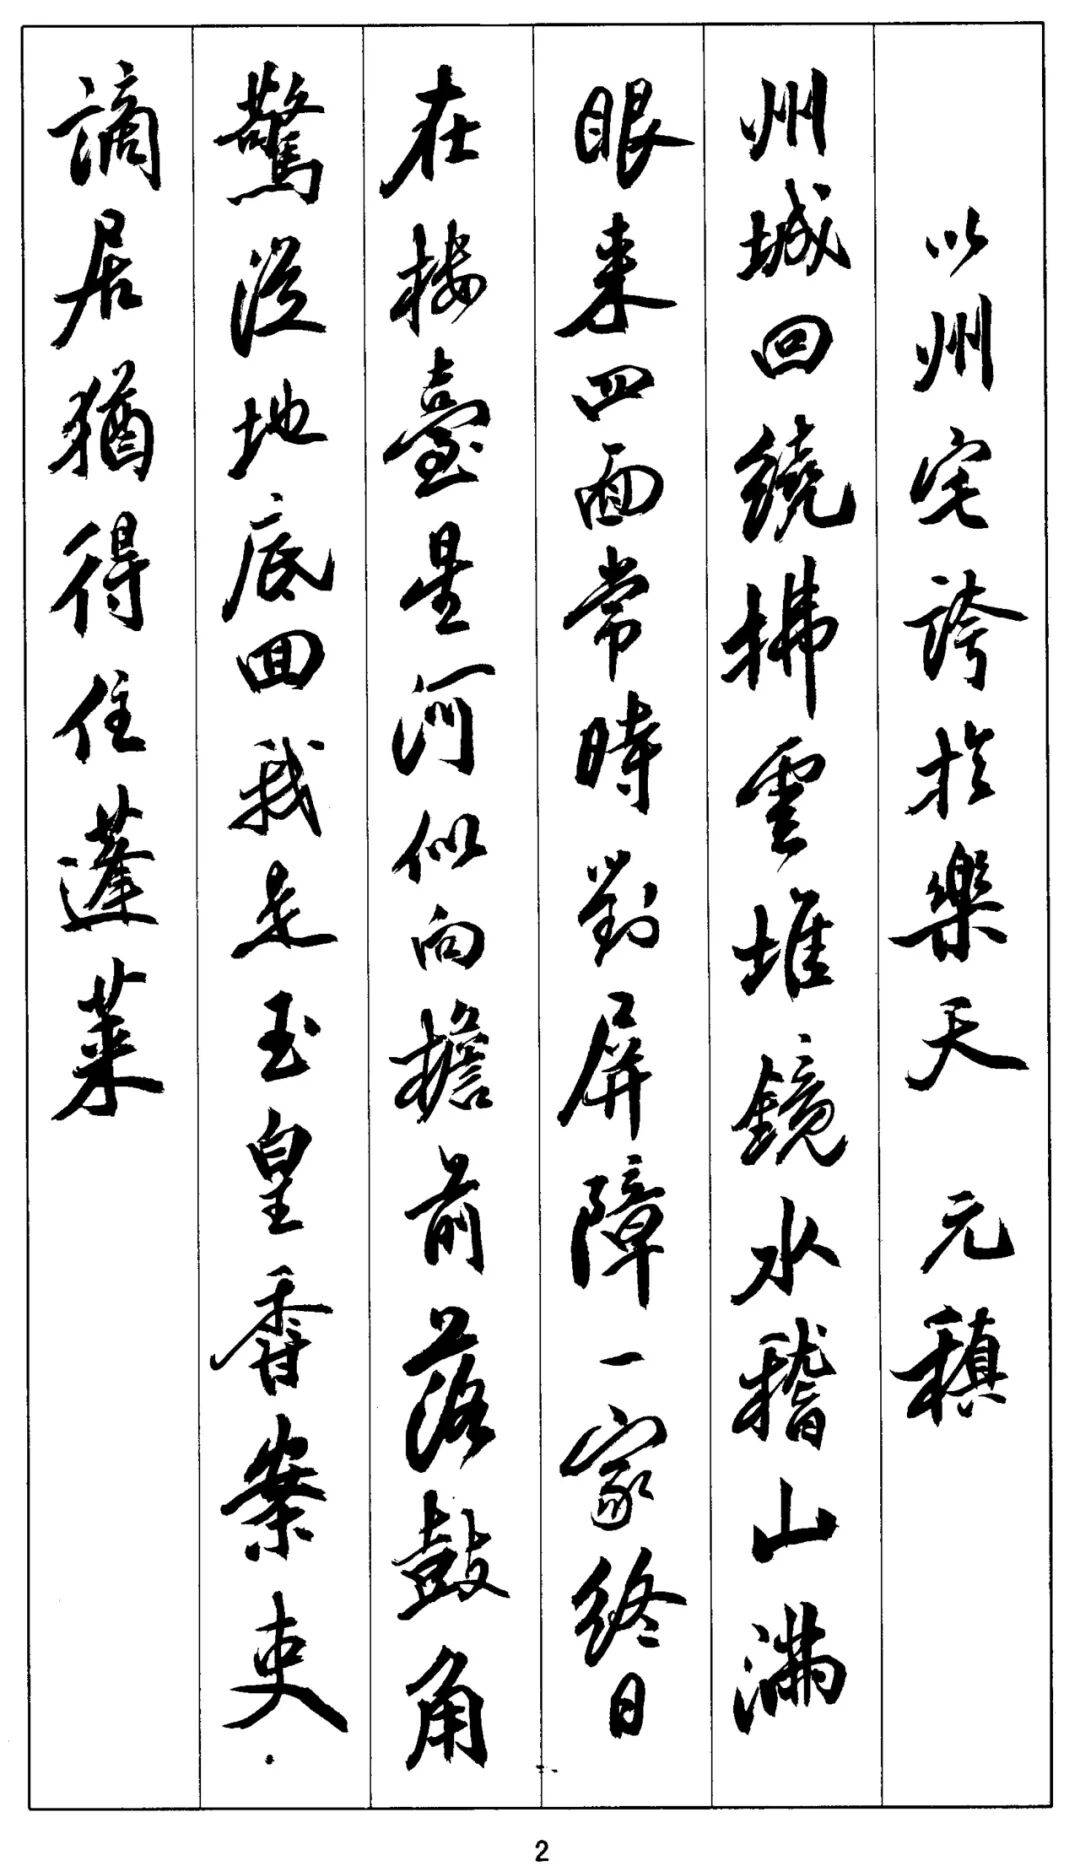 以州宅誇於樂天 元稹
州城回繞拂雲堆鏡水稽山滿
眼来四面常時對屏障一家終日
在楼臺星河似向檐前落鼓角
驚從地底回我是玉皇香案吏
謫居猶得住蓬莱
2